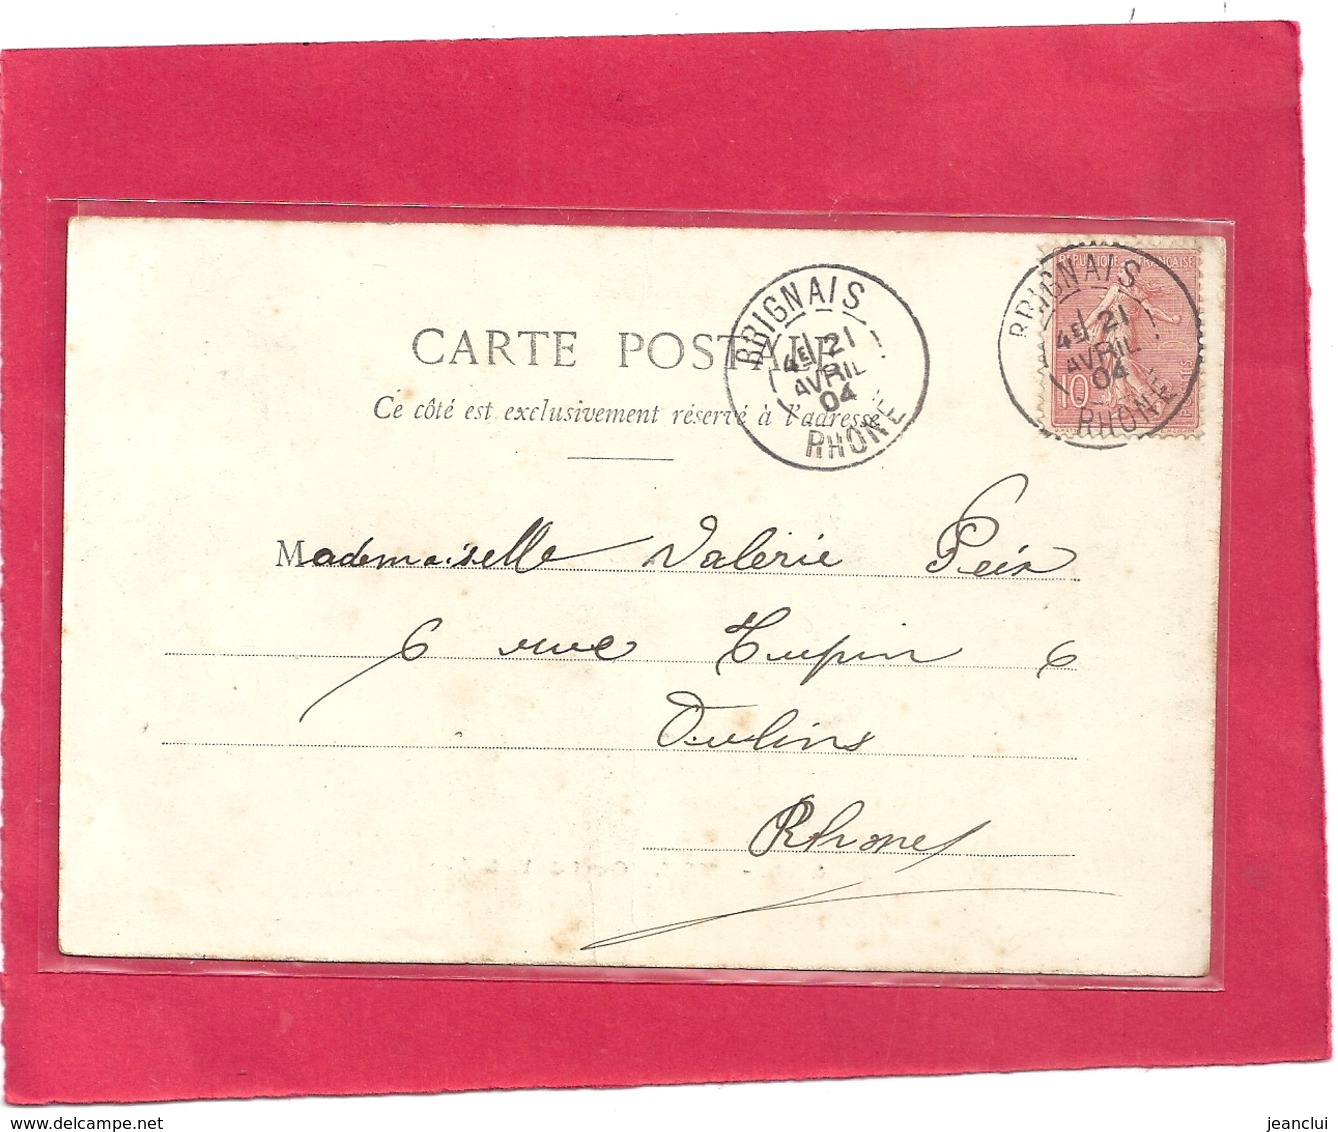 CARTE POSTALE
Ce côté est exclusivement réservé à l'adresse
BRIGNAIS
4E 21
AVRIL
04
RHONE
REPUBLIQUE FRANCAISE
10
POSTES
BRIGNAIS
4E 21
AVRIL
04
RHONE
Mademoiselle Valérie Peix
6 rue Tupin 6
Oullins
Rhone
www.delcampe.net
jeanclui